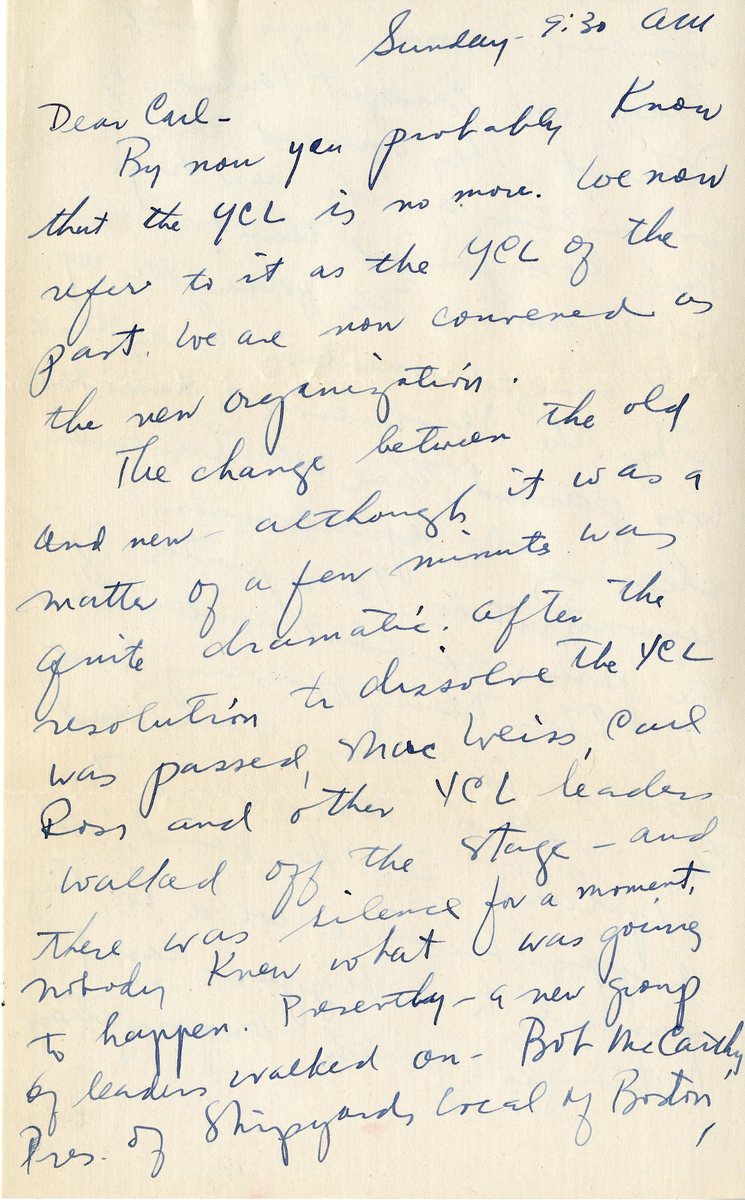 Sunday - 9:30 AM
Dear Carl -
By now you probably know
that the YCL is no more. We now
refer to it as the YCL of the
past. We are now convened as
the new organization.
The change between the old
and new - although it was a
matter of a few minutes was
quite dramatic. After the
resolution to dissolve the YCL
was passed, Mac Weiss, Carl
Ross and other YCL leaders
walked off the stage - and
there was silence for a moment,
nobody knew what was going
to happen. Presently - a new group
of leaders walked on - Bob McCarthy,
Pres. of Shipyards Local of Boston,